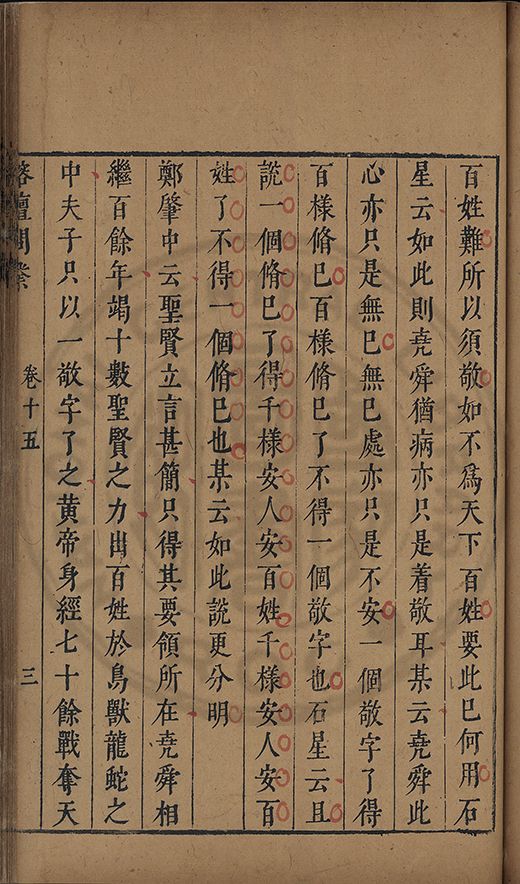 百姓難所以須敬如不爲天下百姓要此巳何用石
星云如此則堯舜猶病亦只是着敬耳某云堯舜此
心亦只是無巳無巳處亦只是不安一個敬字了得
百樣脩巳百樣脩巳了不得一個敬字也石星云且
說一個脩巳了得千樣安人安百姓千樣安人安百
姓了不得一個脩巳也某云如此說更分明
鄭肇中云聖賢立言甚簡只得其要領所在堯舜相
繼百餘年竭十數聖賢之力出百姓於鳥獸龍蛇之
中夫子只以一敬字了之黃帝身經七十餘戰奪天
榕壇問業 卷十五 三